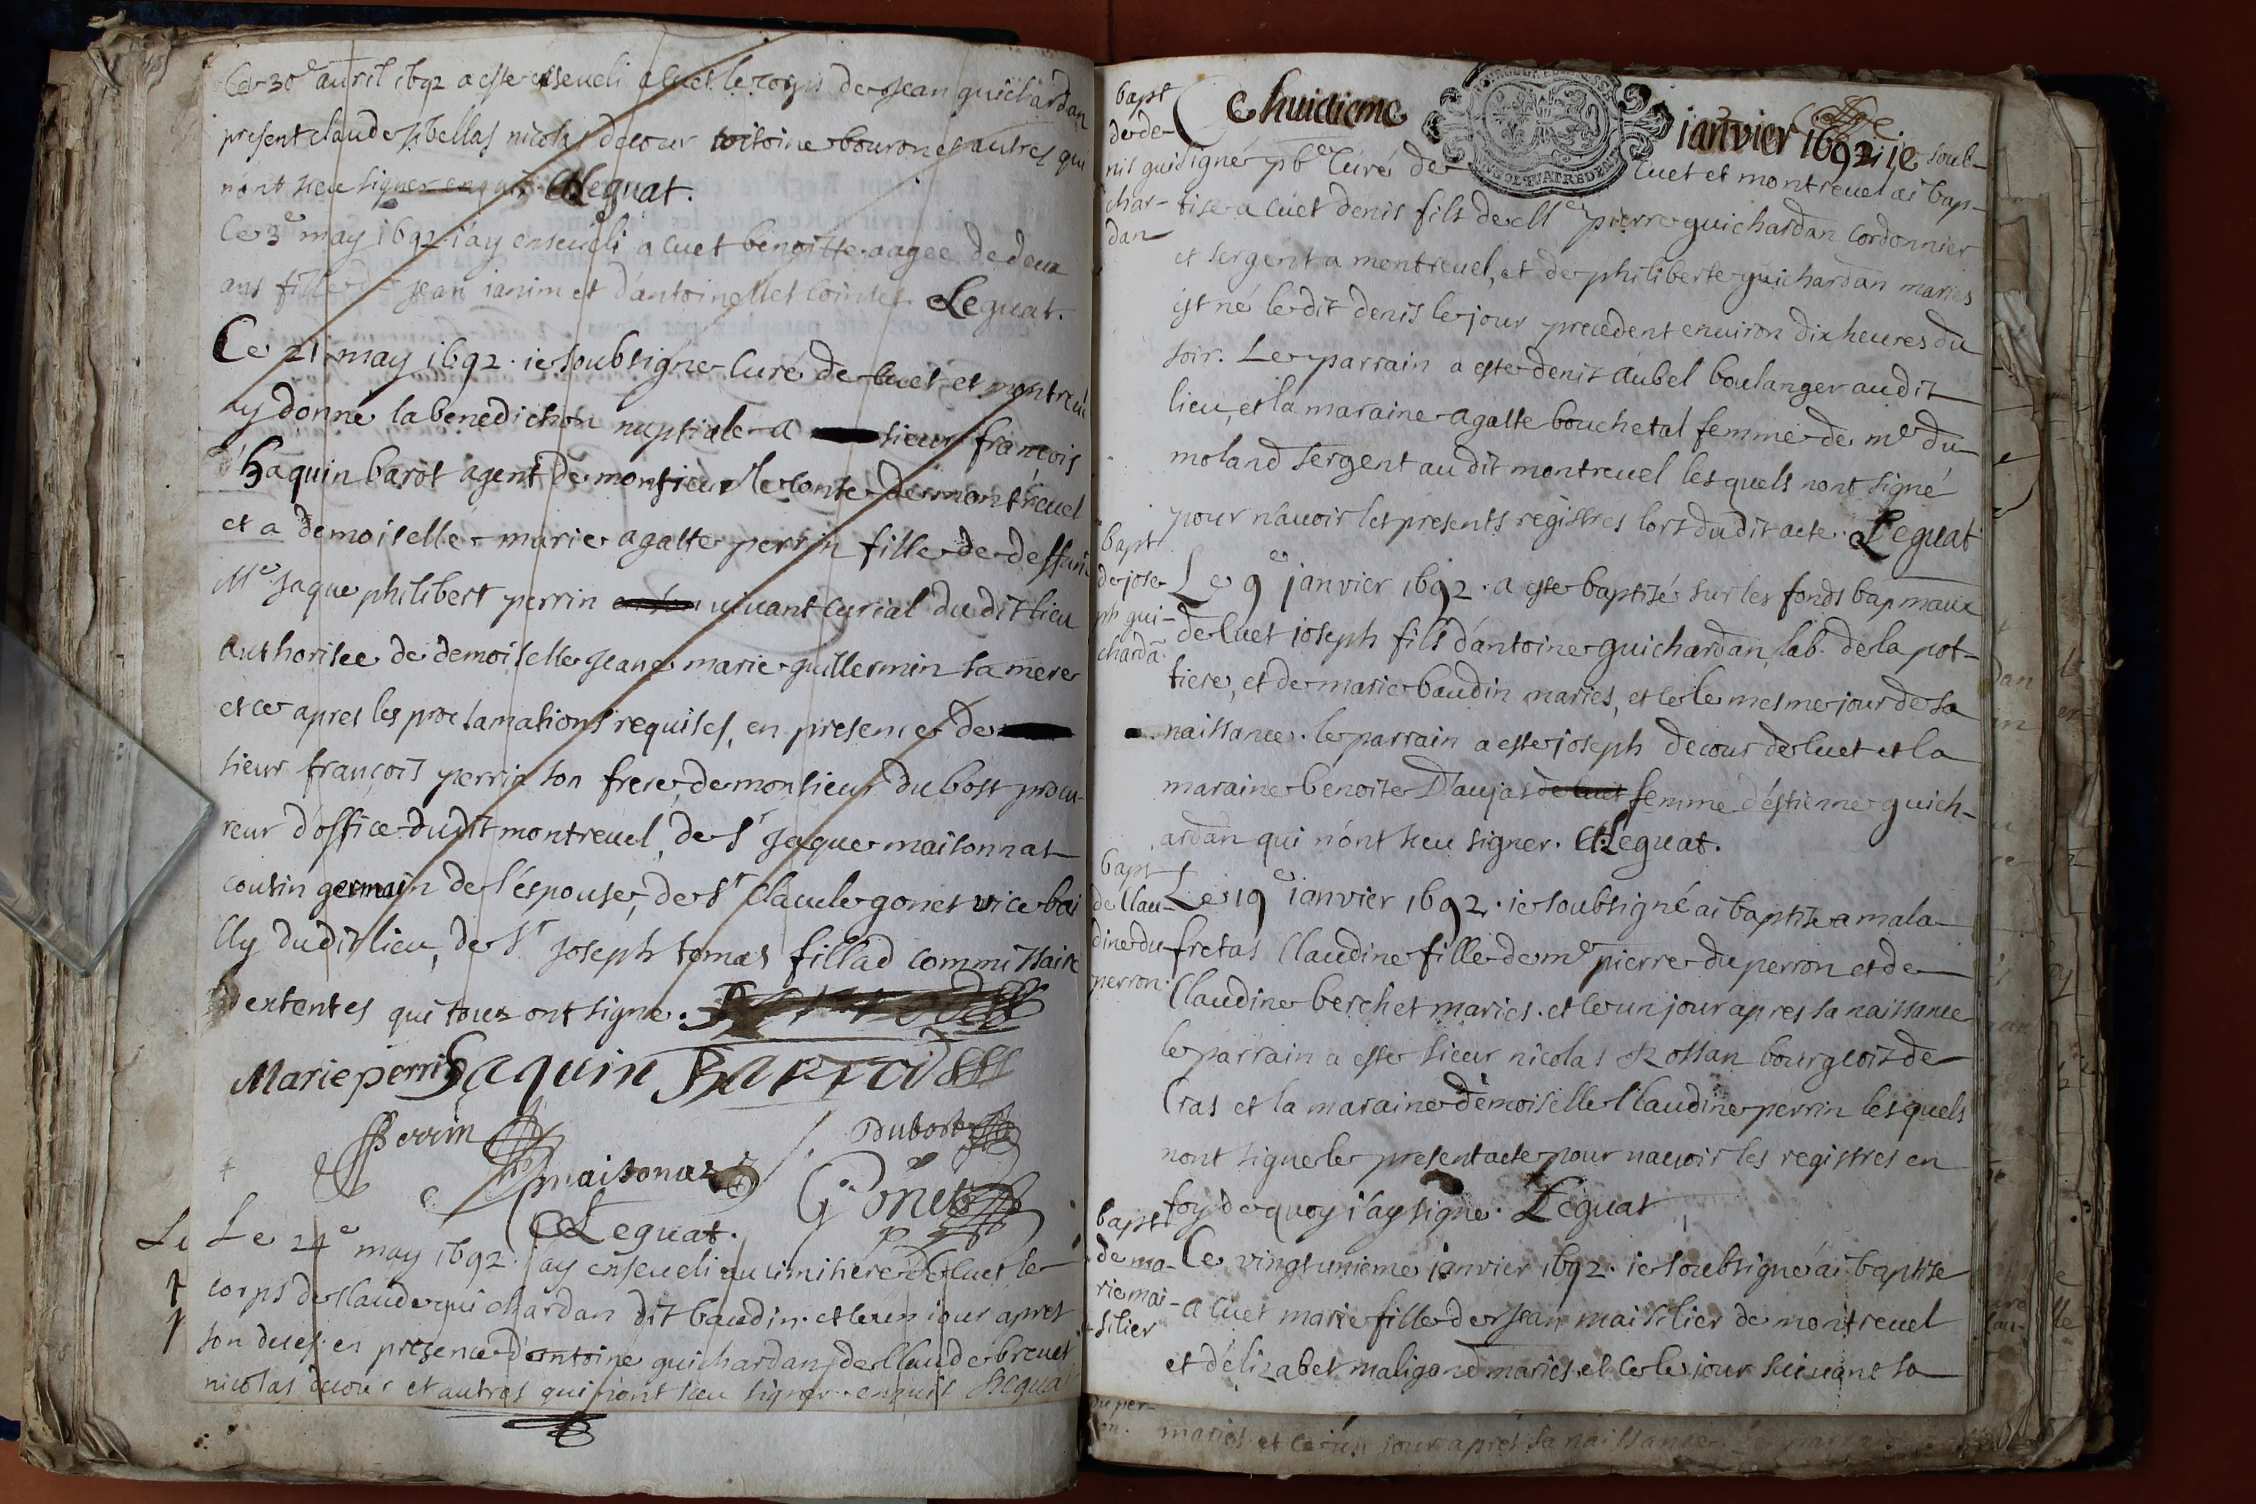 Ce 30e auril 1692 a este enseueli a cuet le corps de Jean guichardan
present claude sibellas nicolas decour toitoine bouron et autres qui
n'ont sceu signer enquis. Leguat.
Ce 3e may 1692 j'ay enseueli a cuet benoitte aagee de deux
ans fille de jean janin et d'antoinette Cointet Leguat.
Ce 21 may 1692. ie soubsigne Curé de cuet et montreuel
ay donné la benediction nuptiale a sieur françois
haquin barot agent de monsieur le conte de montreuel
et a demoiselle marie agatte perrin fille de deffunt
Me Jaque philibert perrin viuant curial du dit lieu
authorisee de demoiselle jeane marie guillermin sa mere
et ce apres les proclamations requises, en presence de
sieur françois perrin son frere, de monsieur dubost procu-
reur d'office dudit montreuel, de Sr Jaque maisonnat
cousin germain de l'espouse, de Sr Claude gonet vice bai
lly dudit lieu, de Sr Joseph tomas fillad commissaire
d'extentes qui tous ont signé.
Marie perrin haquin Barrod
Perrin Dubost
maisonat Gonet
Leguat.
Le 24e may 1692. j'ay enseueli au cimitiere de Cuet le
corps de claude guichardan dit baudin. et le un iour apres
son deces en presence d'antoine guichardan, de Claude breuet
nicolas decour et autres qui n'ont sceu signer enquis Leguat
bapt
de de-
nis gui
char-
dan
Ce huitieme ianvier 1692. ie soub-
signé pbre Curé de Cuet et montreuel ai bap-
tise a cuet denis fils de Me pierre guichardan Cordonnier
et sergent a montreuel, et de philiberte guichardan maries
est né le dit denis le jour precedent enuiron dix heures du
soir. Le parrain a este denis aubel boulanger audit
lieu, et la maraine agatte bouchetal femme de me du
moland sergent au dit montreuel lesquels n'ont signé
pour n'auoir les presents registres lors du dit acte. Leguat
bapt
de jose-
ph gui-
chardã
Le 9e janvier 1692. a este baptisé sur les fonds baptimaux
de Cuet joseph fils d'antoine guichardan, lab. de la pot-
tiere, et de marie baudin maries, et ce le mesme jour de sa
naissance. le parrain a este joseph decour de Cuet et la
maraine benoite Daujas de cuet femme d'estienne guich-
ardan qui n'ont sceu signer. Leguat.
bapt
de Clau-
dine du
perron.
Le 19e ianvier 1692. ie soubsigné ai baptise a mala-
fretas Claudine fille de me pierre du perron et de
Claudine berchet maries. et le un jour apres sa naissance
le parrain a este sieur nicolas Rossan bourgeois de
Cras et la maraine demoiselle Claudine perrin lesquels
n'ont signe le present acte pour n'auoir les registres en
foy de quoy i'ay signé. Leguat
bapt
de ma-
rie mai-
silier
Ce vingtunieme janvier 1692. ie soubsigné ai baptise
a cuet marie fille de Jean maisilier de montreuel
et d'elizabet maligand maries. et ce le jour suiuant sa
du per-
on.
maries. et ce un jour apres sa naissance.